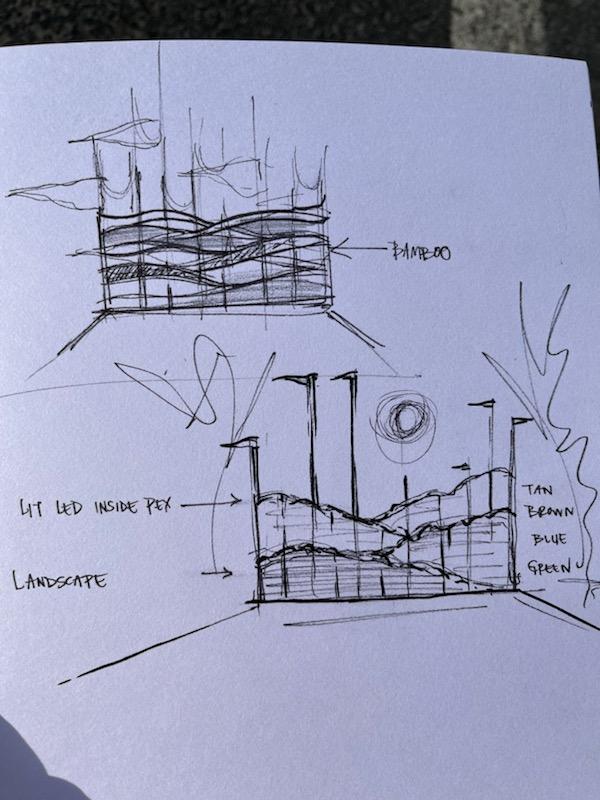 BAMBOO
LIT LED INSIDE PEX
TAN
BROWN
BLUE
GREEN
LANDSCAPE